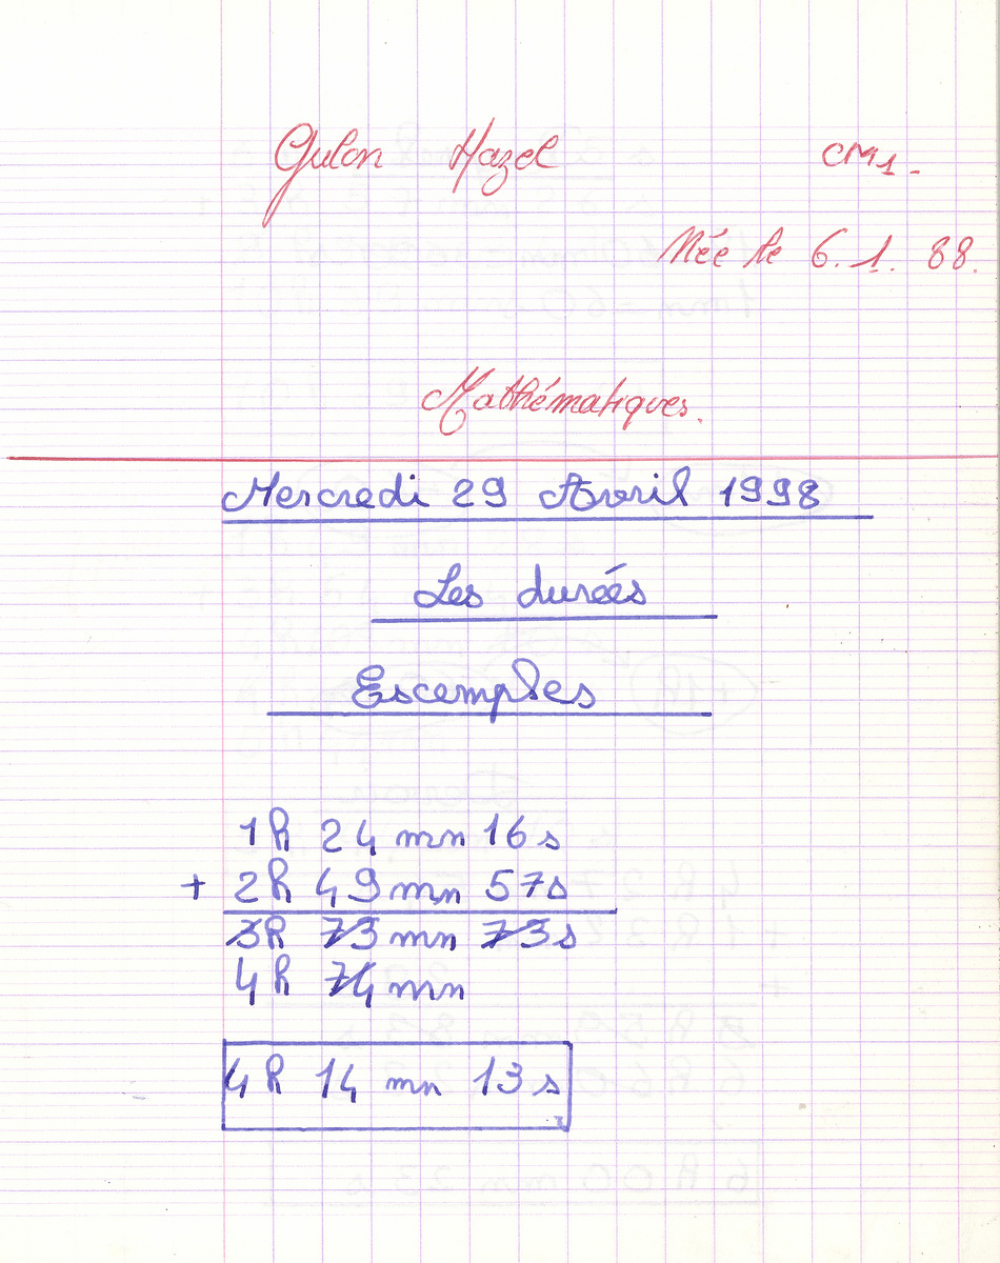 Gulon Hazel CM1.
Née le 6.1.88.
Mathématiques.
Mercredi 29 Avril 1998
Les durées
Escemples
1h 24 mn 16s
+ 2h 49 mn 57s
3h 73 mn 73s
4h 74 mn
4h 14 mn 13s